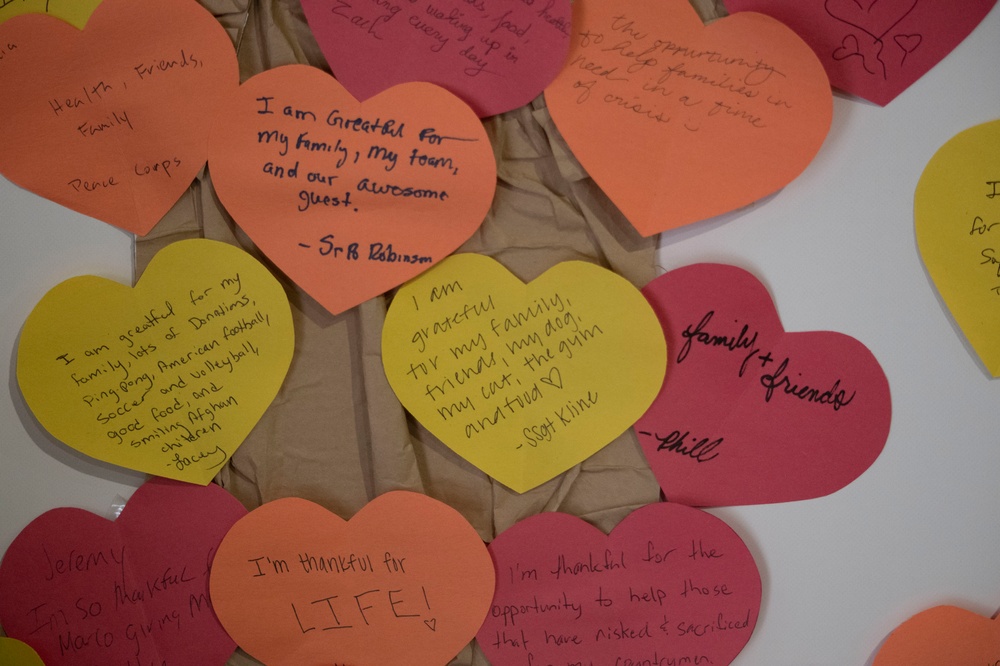 Health, Friends,
Family
Peace Corps
food,
waking up in
every day
Zach
the opportunity
to help families in
need in a time
of crisis
I am Greatful for
my Family, my team,
and our awesome
guest.
- SrA Robinson
I am greatful for my
family, lots of Donations,
Ping Pong, American football,
Soccer and volleyball,
good food, and
smiling Afghan
children
- Lacey
I am
grateful
for my family,
friends, my dog,
my cat, the gym
and food ♡
- SSgt Kline
family +
friends
- Phill
I
for
Jeremy
I'm so thankful
Marco giving
I'm thankful for
LIFE!
I'm thankful for the
opportunity to help those
that have risked & sacrificed
for my countrymen.